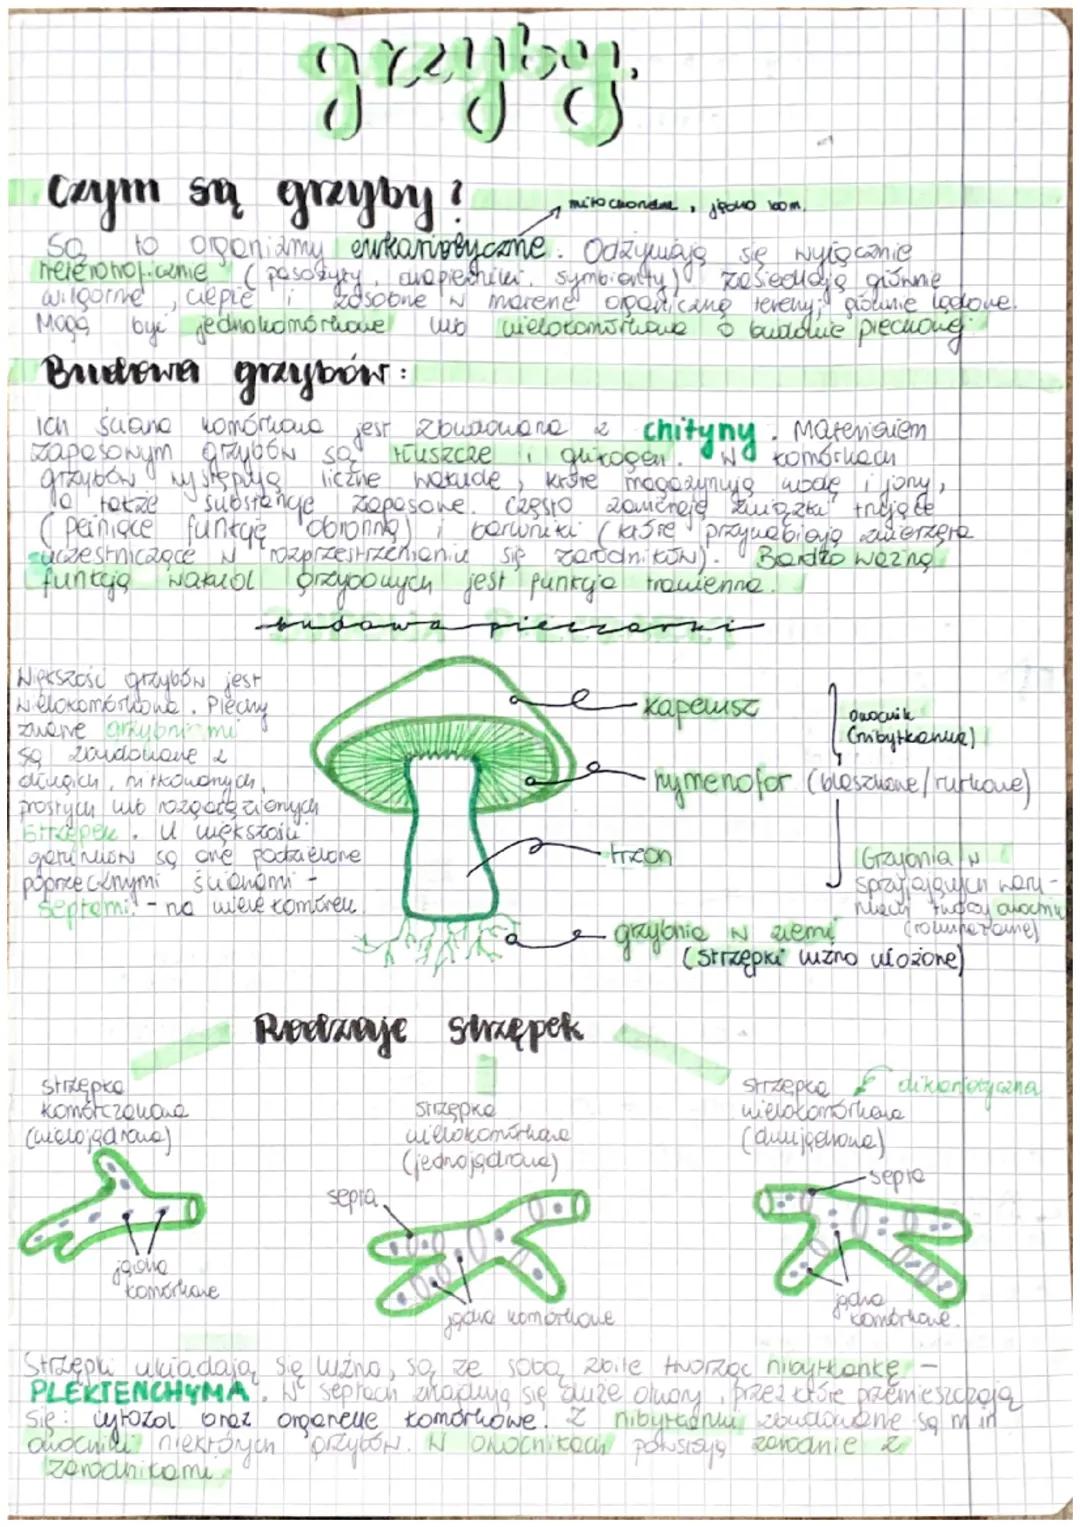 grzyby.
Czym są grzyby?
mitochondria, jądro kom.
Są to organizmy eukariotyczne. Odżywiają się wyłącznie
heterotroficznie (pasożyty, drapieżniki, symbionty) zasiedlają głównie
wilgotne, ciepłe i zasobne w materię organiczną tereny, głównie lądowe.
Mogą być jednokomórkowe lub wielokomórkowe o budowie plechowej
Budowa grzybów:
Ich ściana komórkowa jest zbudowana z chityny. Materiałem
zapasowym grzybów są tłuszcze i glikogen. W komórkach
grzybów występują liczne wakuole, które magazynują wodę i jony,
a także substancje zapasowe. Często zawierają związki trujące
(pełniące funkcję obronną) i barwniki (które przywabiają zwierzęta
uczestniczące w rozprzestrzenianiu się zarodników). Bardzo ważną
funkcją wakuol grzybowych jest funkcja trawienna.
budowa pieczarki
Większość grzybów jest
wielokomórkowa. Plechy
zwane grzybniami
są zbudowane z
długich, nitkowatych,
prostych lub rozgałęzionych
strzępek. U większości
gatunków są one podzielone
poprzecznymi ścianami -
septami - na wiele komórek.
kapelusz
owocnik
(nibytkanka)
hymenofor (blaszkowe/rurkowe)
trzon
Grzybnia w
sprzyjających waru-
nkach tworzy owocniki
grzybnia w ziemi
(strzępki luźno ułożone)
Rodzaje strzępek
strzępka
komórczakowa
(wielojądrowa)
jądra
komórkowe
strzępka
wielokomórkowa
(jednojądrowa)
septa
jądra komórkowe
strzępka dikariotyczna
wielokomórkowa
(dwujądrowa)
septa
jądra
komórkowe.
Strzępki układają się luźno, są ze sobą zbite tworząc nibytkankę -
PLEKTENCHYMA. W septach znajdują się duże otwory, przez które przemieszczają
się: cytozol oraz organelle komórkowe. Z nibytkanki zbudowane są m.in
owocniki niektórych grzybów. W owocnikach powstają zarodnie z
zarodnikami.